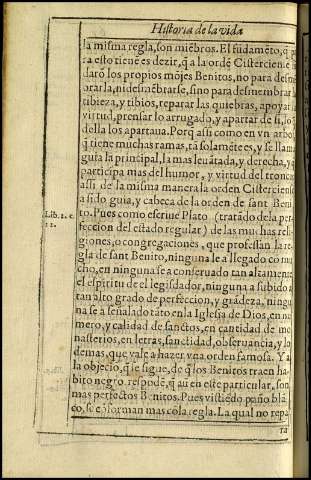 Historia de la vida
la misma regla, son miẽbros. El fũdamẽto, q̃
ra esto tiene es dezir, q̃ a la ordẽ Cisterciense
darõ los propios mõjes Benitos, no para desm
brarla, ni desmẽbrarse, sino para desmembrar
tibieza, y tibios, reparar las quiebras, apoyar
virtud, prensar lo arrugado, y apartar de si, lo q̃
della los apartaua. Porq̃ assi como en vn arbo
q̃ tiene muchas ramas, tã solamẽte es, y se llam
guia la principal, la mas leuãtada, y derecha, y q̃
participa mas del humor, y virtud del tronco
assi de la misma manera la orden Cisterciense
a sido guia, y cabeça de la orden de sant Beni
to. Pues como escriue Plato (tratãdo de la per
feccion del estado regular) de las muchas reli
giones, o congregaciones, que professan la re
gla de sant Benito, ninguna le a llegado co mu
cho, en ninguna se a conseruado tan altamente
el espiritu de el legislador, ninguna a subido a
tan alto grado de perfeccion, y grãdeza, ningu
na se a señalado tãto en la Iglesia de Dios, en nu
mero, y calidad de sanctos, en cantidad de mo
nasterios, en letras, sanctidad, obseruancia, y lo
demas, que vale a hazer vna orden famosa. Y a
la objeciõ, q̃ se sigue, de q̃ los Benitos traen ha
bito negro. respõde, q̃ aũ en este particular, son
mas perfectos Benitos. Pues vistiẽdo paño blã
co, se cõforman mas cõ la regla. La qual no repa
ra
Lib. 2. c.
12.